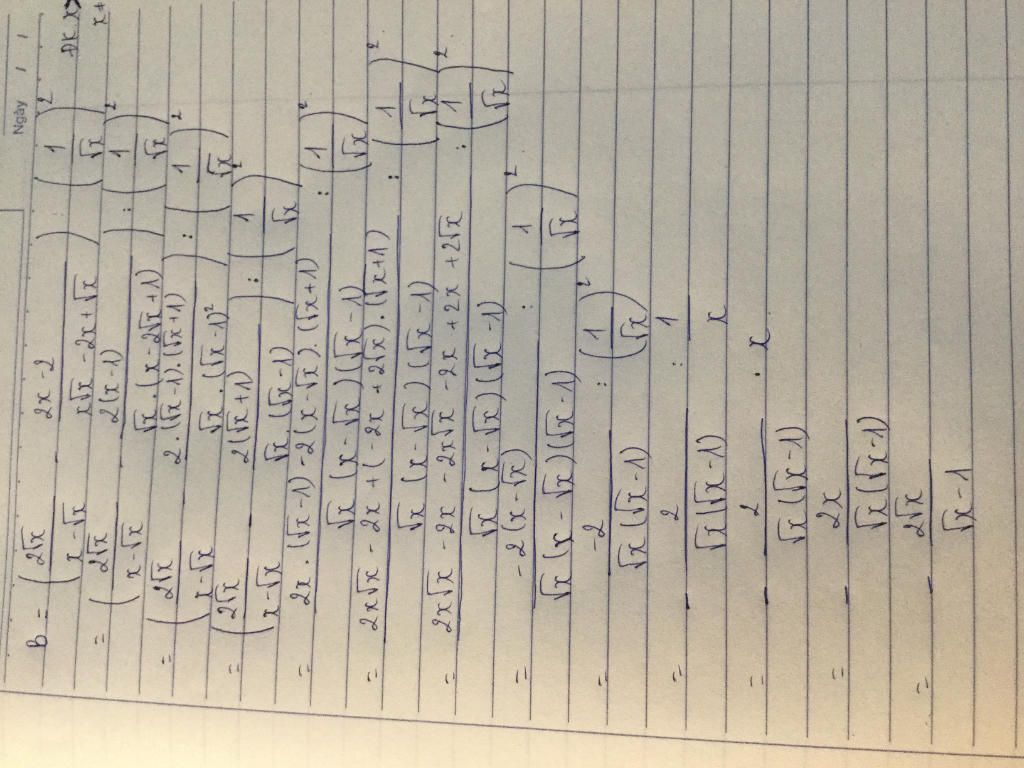 Ngày / /
B = (2√x/(x-√x) - (2x-2)/(x√x-2x+√x)) : (1/√x)²
= (2√x/(x-√x) - 2(x-1)/(√x.(x-2√x+1))) : (1/√x)²
= (2√x/(x-√x) - 2.(√x-1).(√x+1)/(√x.(√x-1)²)) : (1/√x)²
= (2√x/(x-√x) - 2(√x+1)/(√x(√x-1))) : (1/√x)²
= (2x.(√x-1)-2(x-√x).(√x+1))/(√x(x-√x)(√x-1)) : (1/√x)²
= (2x√x-2x+(-2x+2√x).(√x+1))/(√x(x-√x)(√x-1)) : (1/√x)²
= (2x√x-2x-2x√x-2x+2x+2√x)/(√x(x-√x)(√x-1)) : (1/√x)²
= -2(x-√x)/(√x(x-√x)(√x-1)) : (1/√x)²
= -2/(√x(√x-1)) : (1/√x)²
= - 2/(√x(√x-1)) : 1/x
= - 2/(√x(√x-1)) . x
= - 2x/(√x(√x-1))
= - 2√x/(√x-1)